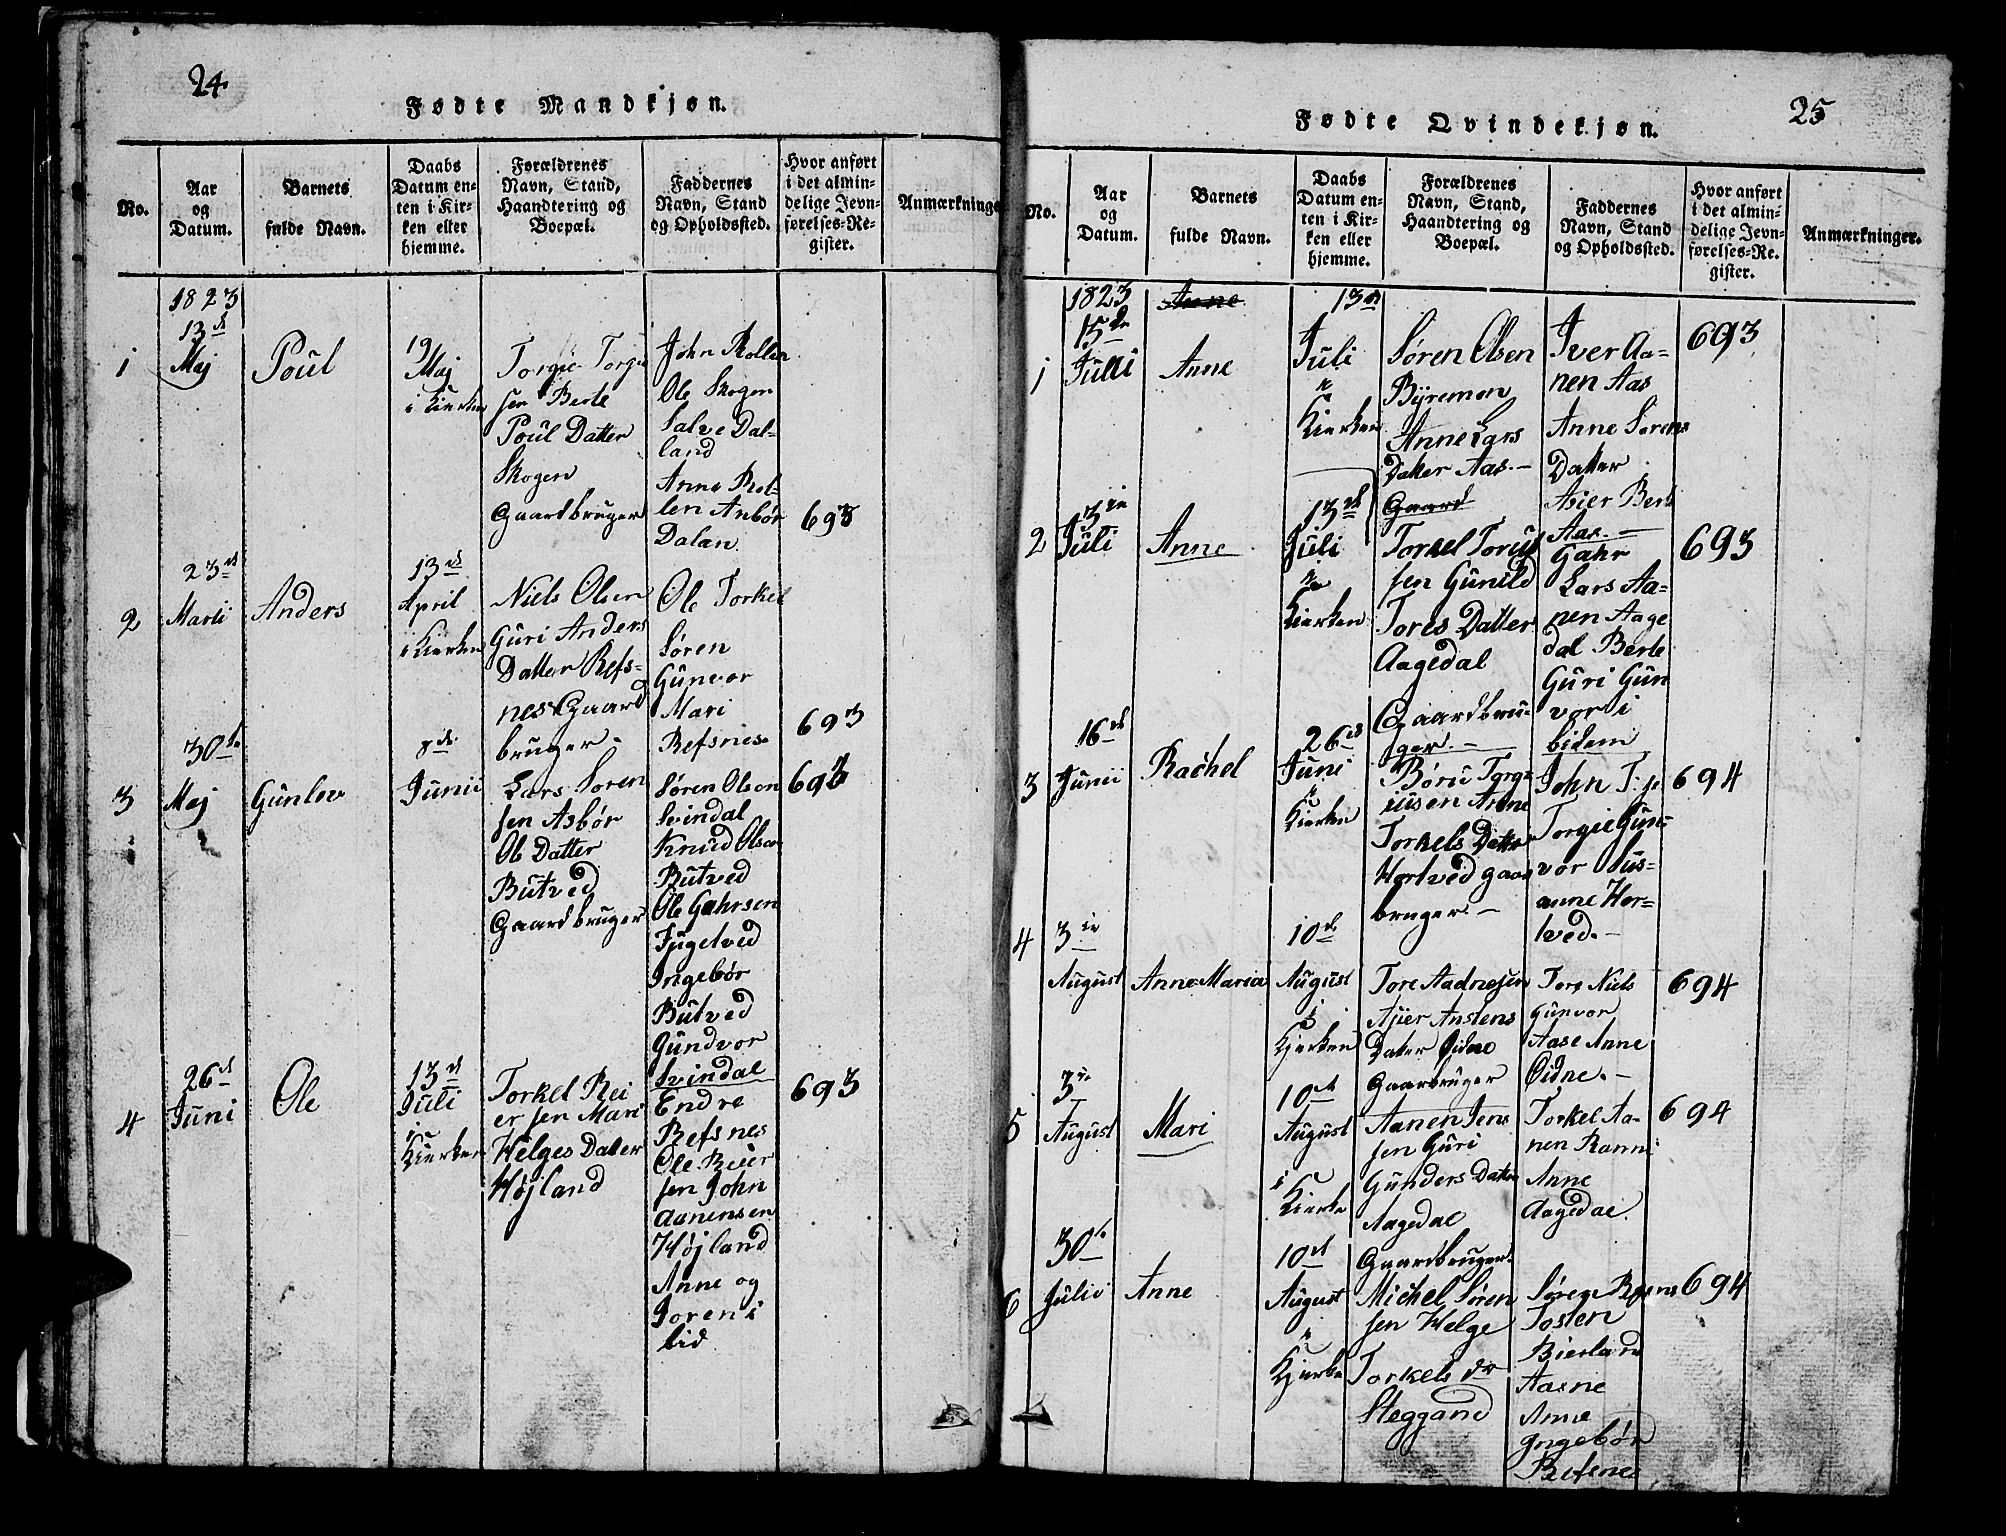 24
Fødte Mandkjøn.
No.
Aar
og
Datum.
Barnets
fulde Navn.
Daabs
Datum en-
ten i Kir-
ken eller
hjemme.
Forældrenes
Navn, Stand,
Haandtering og
Boepæl.
Faddernes
Navn, Stand
og Opholdssted.
Hvor anført
i det almin-
delige Jevn-
førelses-Re-
gister.
Anmærkninge
1823
13de
1
Maj
Poul
19
Maj
i Kierken
Torgie Torgie
sen Berte
Poul Datter
Skogen
Gaardbruger
John Rollen
Ole Skogen
Salve Dal-
land
Anne Rol-
len Anbør
Dalan
693
2
23de
Marti
Anders
13de
April
i Kierken
Niels Olsen
Guri Anders
Datter Refs-
nes Gaard
bruger.
Ole Torkel
Søren
Gunvor
Mari
Refsnis
693
3
30te
Maj
Gunlov
8de
Junii
Lars Soren
sen Asbør
Ole Datter
Butved
Gaardbruger
Søren Olson
Svindal
Knud Olson
Butved
Ole Gahrsen
Ingebør
Butved
Gundvor
Svindal
693
4
26de
Juni
Ole
13de
Juli
i
Kierken
Torkel Rei
er sen Mari
Helges Datter
Højland
Endre
Refsnes
Ole Reier
sen John
Aanensen
Højland
Anne og
Joren i
bid
693
25
Fødte Qvindekjøn.
No.
Aar
og
Datum.
Barnets
fulde Navn.
Daabs
Datum en-
ten i Kir-
ken eller
hjemme.
Forældrenes
Navn, Stand,
Haandtering og
Boepæl.
Faddernes
Navn, Stand
og Opholdssted.
Hvor anført
i det almin-
delige Jevn-
førelses-Re-
gister.
Anmærkninger.
1823
Anne
1
15de
Julli
Anne
13de
Juli
i
Kierken
Søren Olsen
Byremon
Anne Lars
Datter Aas.-
Gaard
Iver Aa-
nen Aas
Anne Sørens
Datter
Asier Bert
Aas.-
693
2
3die
Juli
Anne
13de
Juli
i
Kierken
Torkel Torius
sen Gunild
Tores Datter
Aagedal
Gaardbru-
ger.-
Gahr
Lars Aa-
nen Aage
dal Berte
Guri Gun
vor i
bidem
693
3
16de
Junii
Rachel
26de
Juni
i
Kierken
Børu Torgi
iusen Anne
Torkels Datter
Hortved gaar
bruger.-
John
Torgie Gun-
vor Sus-
anne Hor-
tved.-
694
4
3die
August
Anne Maria
10de
August
i
Kjerken
Tore Aadnesen
Asier Anstens
Dater Oidne
Gaarbruger
Tore Niels
Gunvor
Aase Anne
Oidne.-
694
5
3die
August
Mari
10de
August
i
Kierke
Aanen Jens
sen Guri
Gunders Datter
Aagedal
Gaardbruger.
Torkel Aa-
nen Ranni
Anne
Aagedal.
694
6
30te
Julii
Anne
10de
August
i
Kjerke
Michel Søren
sen Helge
Torkels dr
Steggand
Søren Refsnes
Tosten
Bierland
Aasne
Anne
Ingebør
Refsnes
694